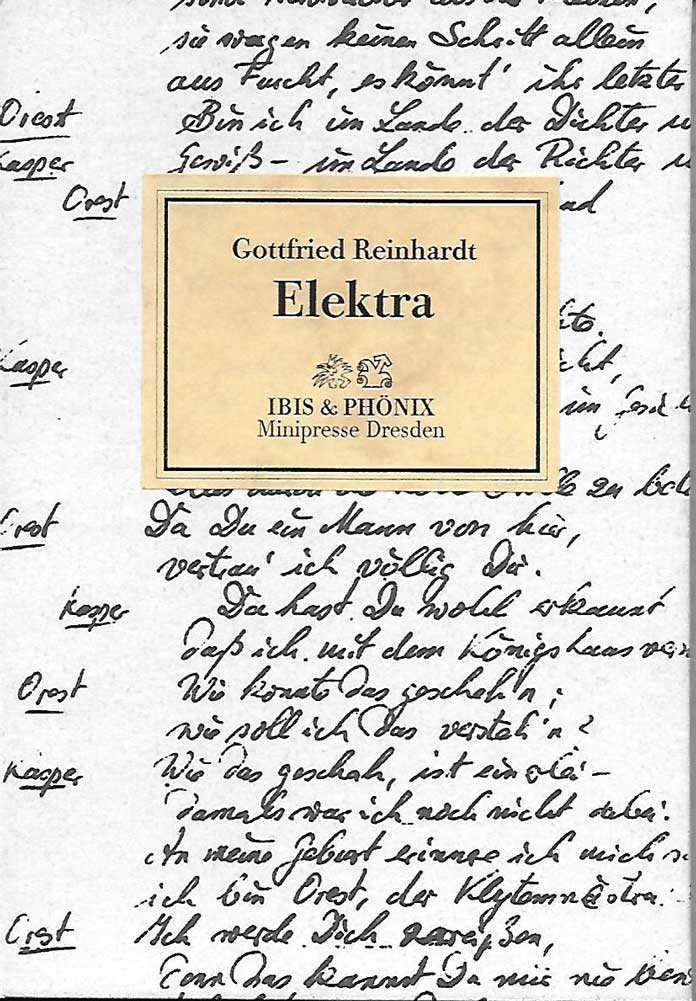 sie wagen keinen Schritt allein
aus Furcht, es könnt' ihr letzter
Orest Bin ich im Lande der Dichter u
Kasper Gewiß – im Lande der Richter u
Orest
Gottfried Reinhardt
Elektra
IBIS & PHÖNIX
Minipresse Dresden
Kasper
im Gesi
zu
Orest Da Du ein Mann von hier,
vertrau' ich völlig Dir.
Kasper Da hast Du wohl erkannt
daß ich mit dem Königshaus ver
Orest Wie konnte das gescheh'n;
wie soll ich das versteh'n?
Kasper Wie das geschah, ist
damals war ich noch nicht dabei.
An meine Geburt erinnre ich mich
ich bin Orest, der Klytemnästra
Orest Ich werde Dich
Denn das kannst Du mir nie